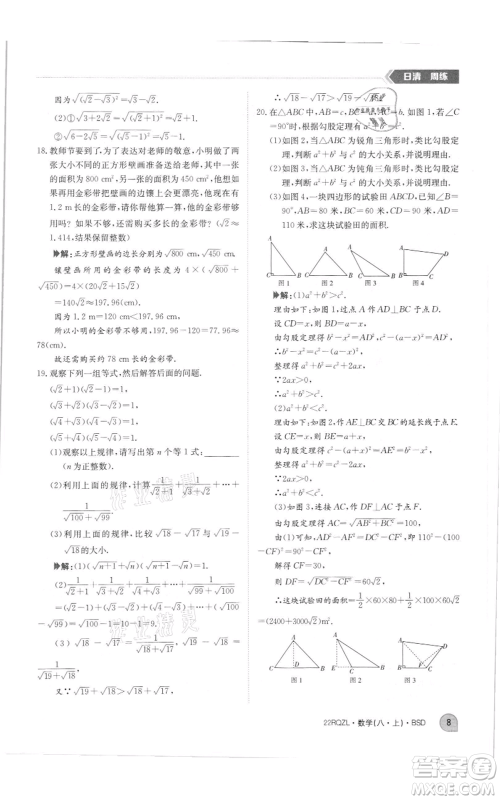 日清 周练
因为(√2-√3)²=5-2√6.
(2)①√(3+2√2)=√2+1.
②√(6-2√5)=√5-1.
18. 教师节要到了,为了表达对老师的敬意,小明做了两
张大小不同的正方形壁画准备送给老师,其中一张面
积为800 cm²,另一张面积为450 cm²,他想:
如果再用金彩带把壁画的边镶上会更漂亮,他现在有
1.2 m长的金彩带,请你帮助算一算,他的金彩带够
用吗?如果不够,还需要购买多长的金彩带?(√2≈
1.414,结果保留整数)
解:正方形壁画的边长分别为√800 cm,√450 cm.
镶壁画所用的金彩带长为4×(√800+
√450)=4×(20√2+15√2)
=140√2≈197.96(cm)
因为1.2 m=120 cm<197.96 cm.
所以小明的金彩带不够用,197.96-120=77.96≈
78(cm).
故还需购买约78 cm长的金彩带.
19. 观察下列一组等式,然后解答后面的问题.
(√2+1)(√2-1)=1,
(√3+√2)(√3-√2)=1,
(√4+√3)(√4-√3)=1,
(√5+√4)(√5-√4)=1.
(1)观察以上规律,请写出第n个等式:
(n为正整数).
(2)利用上面的规律,计算:1/(√2+1)+1/(√3+√2)+1/(√4+√3)+…+
1/(√100+√99).
(3)请利用上面的规律,比较√18-√17与√19-
√18的大小.
解:(1)(√(n+1)+√n)(√(n+1)-√n)=1.
(2)1/(√2+1)+1/(√3+√2)+1/(√4+√3)+…+1/(√100+√99)
=√2-1+√3-√2+√4-√3+…+√100
-√99=√100-1=10-1=9.
(3)∵1/(√18-√17)=√18+√17,1/(√19-√18)=
√19+√18,
又∵√18+√17<√19+√18,
∴√18-√17>√19-√18.
20. 在△ABC中,AB=c,BC=a,AC=b.如图1,若∠C
=90°时,根据勾股定理有a²+b²=c².
(1)如图2,当△ABC为锐角三角形时,类比勾股定
理,判断a²+b²与c²的大小关系,并说明理由.
(2)如图3,当△ABC为钝角三角形时,类比勾股定
理,判断a²+b²与c²的大小关系,并说明理由.
(3)如图4,一块四边形的试验田ABCD,已知∠B=
90°,AB=80米,BC=60米,CD=90米,AD=
110米,求这块试验田的面积.
图1 图2 图3 图4
解:(1)a²+b²>c².
理由如下:如图,过点A作AD⊥BC于点D.
设CD=x.
由勾股定理得b²-x²=AD²,c²-(a-x)²=AD²,
∴b²-x²=c²-(a-x)².
整理得a²+b²=c²+2ax.
∵2ax>0,
∴a²+b²>c².
(2)a²+b²<c².
理由如下:作AE⊥BC交BC的延长线于点E.
设CE=x.
由勾股定理得c²-(a+x)²=AE²=b²-x².
整理得a²+b²=c²-2ax.
∵2ax>0,
∴a²+b²<c².
(3)连接AC,作DF⊥AC于点F.
由勾股定理得AC=√(AB²+BC²)=100.
由勾股定理得CD²-CF²=AD²-AF²,110²-(100
-CF)²=90²-CF².
解得CF=30.
则DF=√(DC²-CF²)=60√2.
∴这块试验田的面积=1/2×60×80+1/2×100×60√2
=(2400+3000√2)米².
22RQZL·数学(八·上)·BSD 8